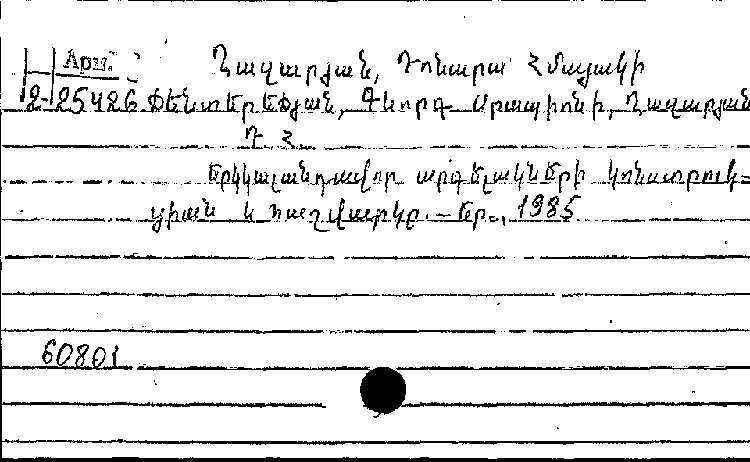 Արմ. Ղազարյան, Դոնարա Հմայակի
2-25426 Փենտերեջյան, Գևորգ Սրապիոնի, Ղազարյան
Դ Հ
Երկկալանդավոր արգելակների կոնստրուկ-
ցիան և հաշվարկը. – Եր., 1985
60801